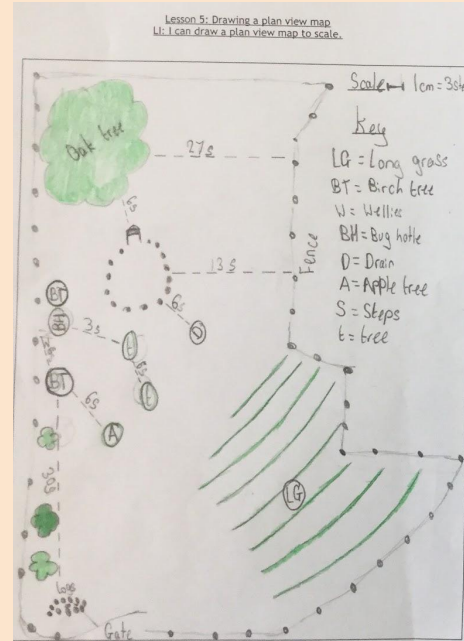 Lesson 5: Drawing a plan view map
LI: I can draw a plan view map to scale.
Scale 1cm = 3ste
Key
LG = Long grass
BT = Birch tree
W = Wellies
BH = Bug hotle
D = Drain
A = Apple tree
S = Steps
t = tree
Oak tree
27s
6s
13s
Fence
6s
D
BT
BH
3s
t
6s
t
BT
6s
A
30s
LG
Logs
Gate